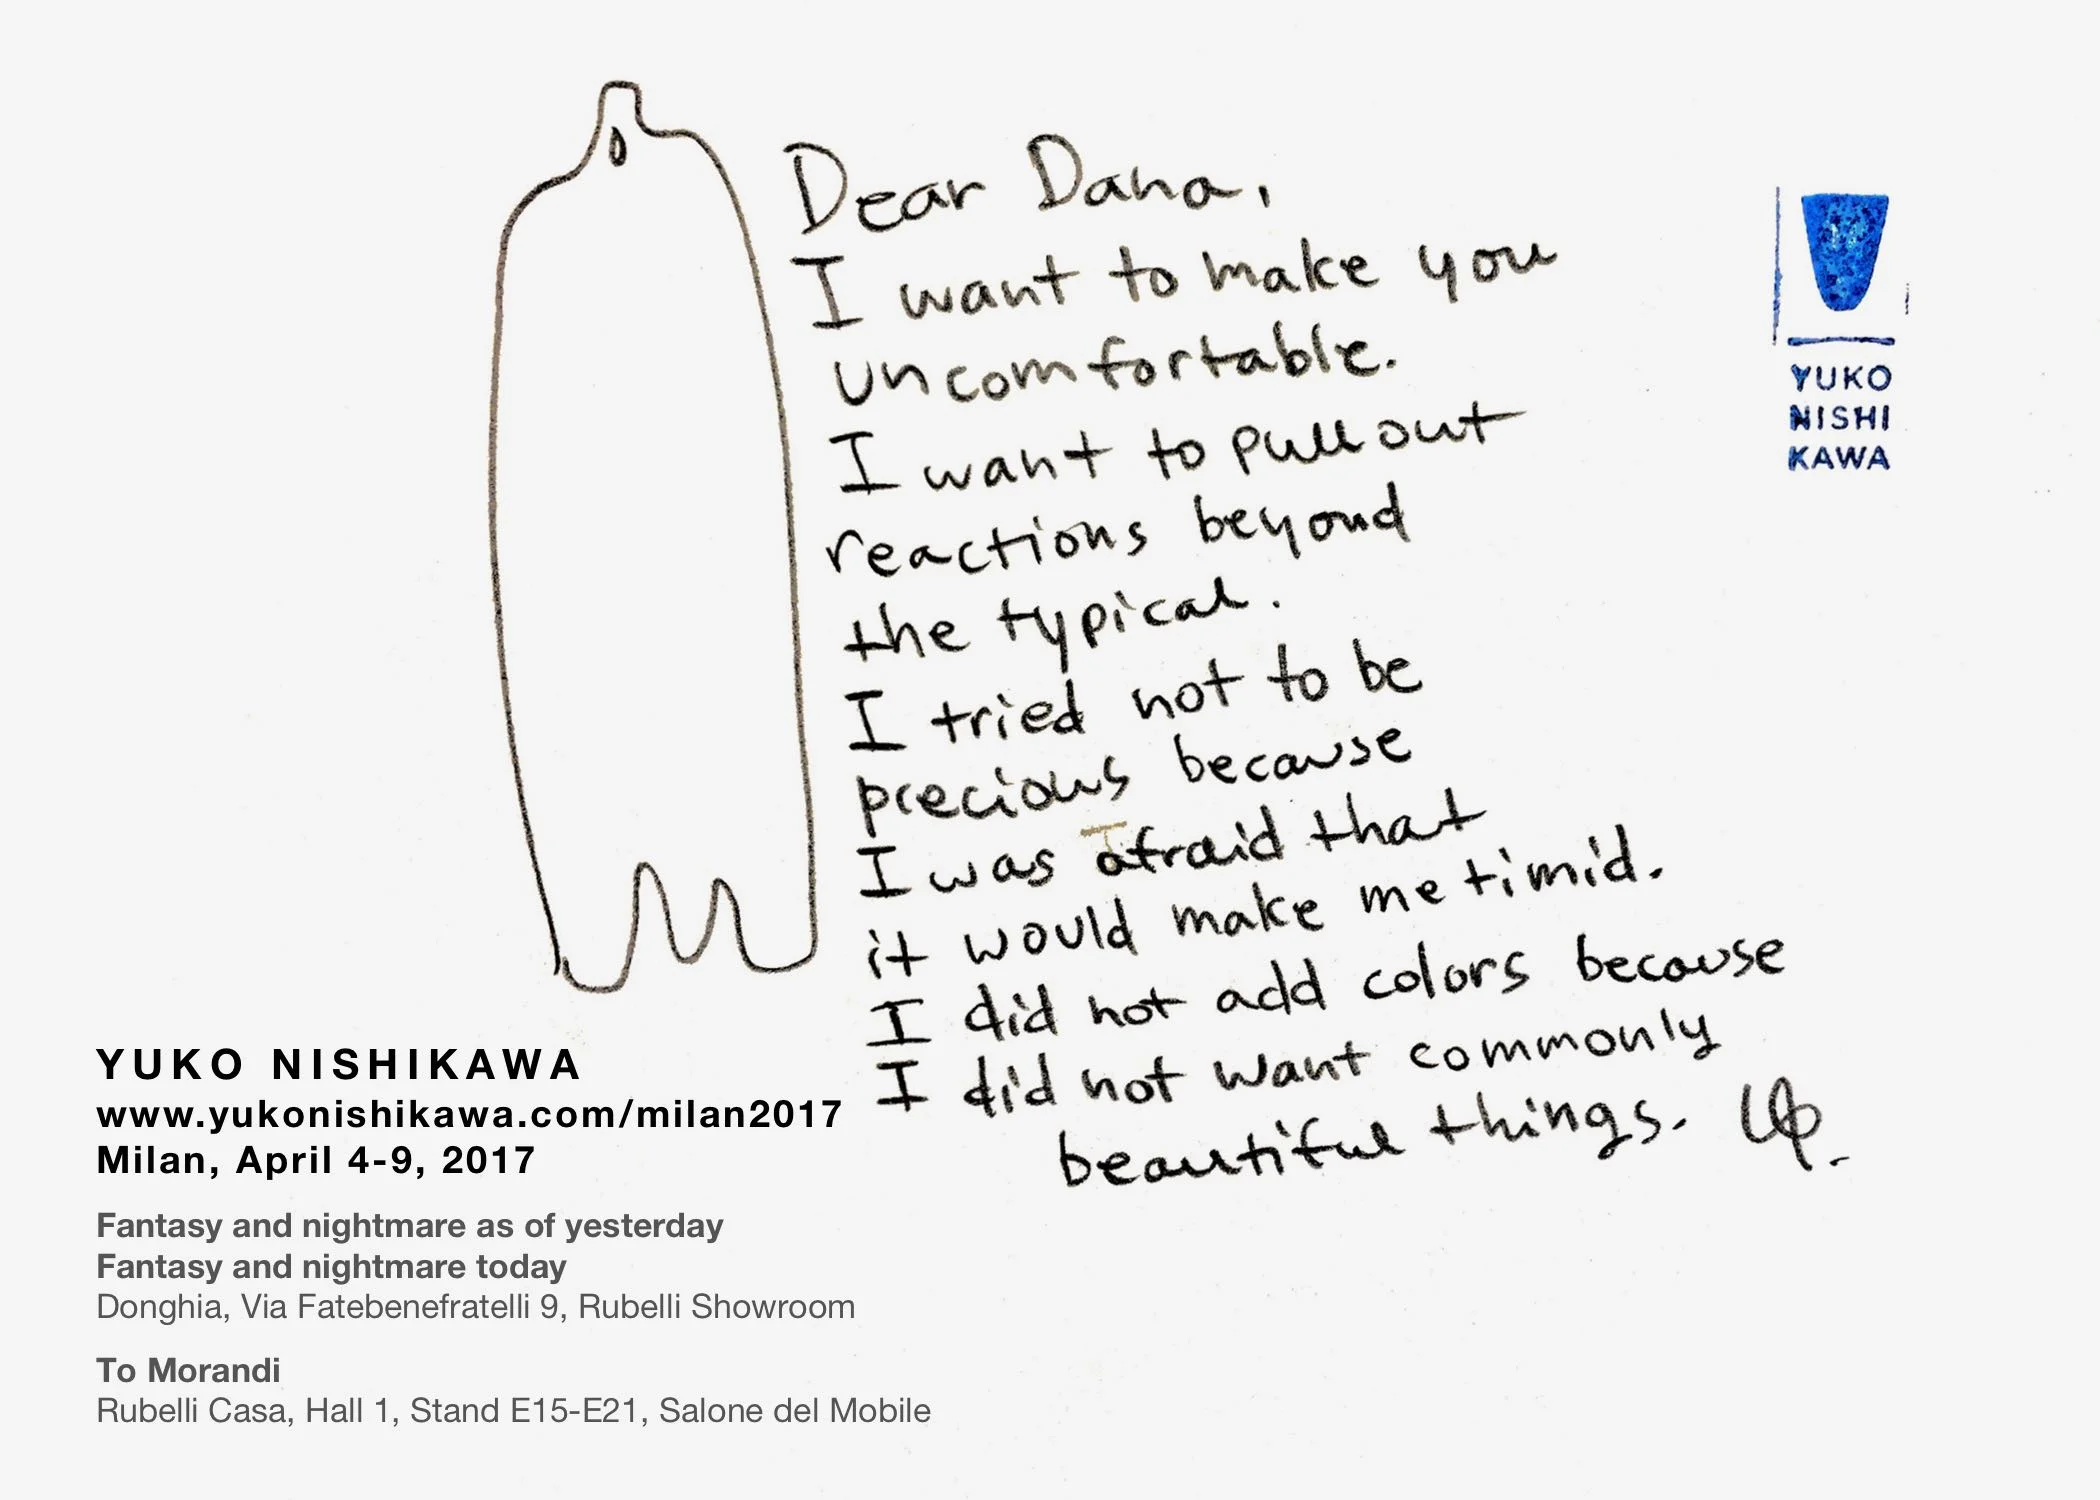 Dear Dana,
I want to make you
uncomfortable.
I want to pull out
reactions beyond
the typical.
I tried not to be
precious because
I was afraid that
it would make me timid.
I did not add colors because
I did not want commonly
beautiful things.
YUKO
NISHI
KAWA
YUKO NISHIKAWA
www.yukonishikawa.com/milan2017
Milan, April 4-9, 2017
Fantasy and nightmare as of yesterday
Fantasy and nightmare today
Donghia, Via Fatebenefratelli 9, Rubelli Showroom
To Morandi
Rubelli Casa, Hall 1, Stand E15-E21, Salone del Mobile